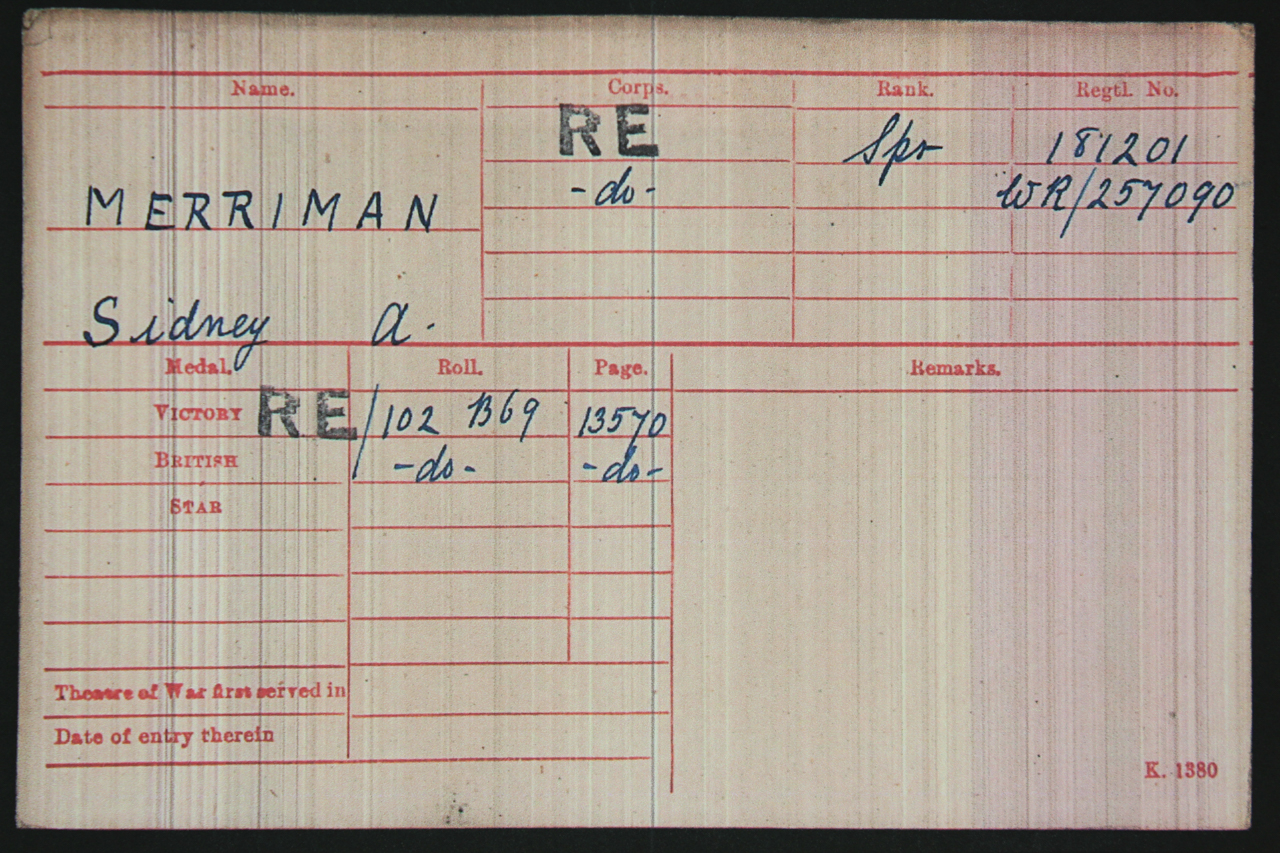 Name. Corps. Rank. Regtl. No.
RE Spr 181201
MERRIMAN -do- WR/257090
Sidney A.
Medal. Roll. Page. Remarks.
VICTORY RE/102 B69 13570
BRITISH -do- -do-
STAR
Theatre of War first served in
Date of entry therein
K. 1380